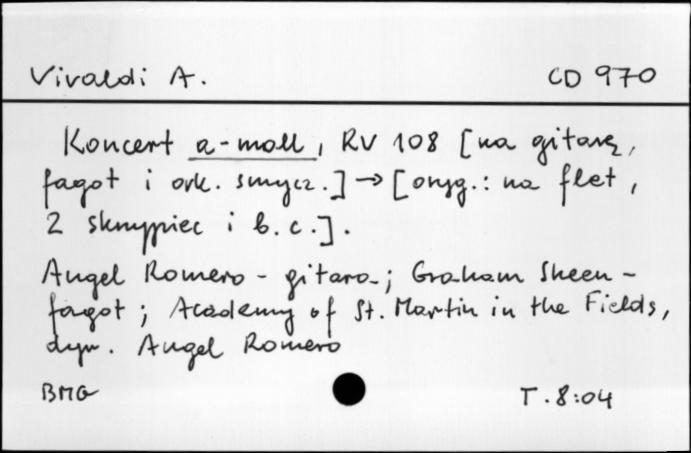 Vivaldi A. CD 970
Koncert a-moll, RV 108 [na gitarę,
fagot i ork. smycz.] → [oryg.: na flet,
2 skrzypiec i b.c.].
Angel Romero - gitara; Graham Sheen -
fagot; Academy of St. Martin in the Fields,
dyr. Angel Romero
BMG T. 8:04